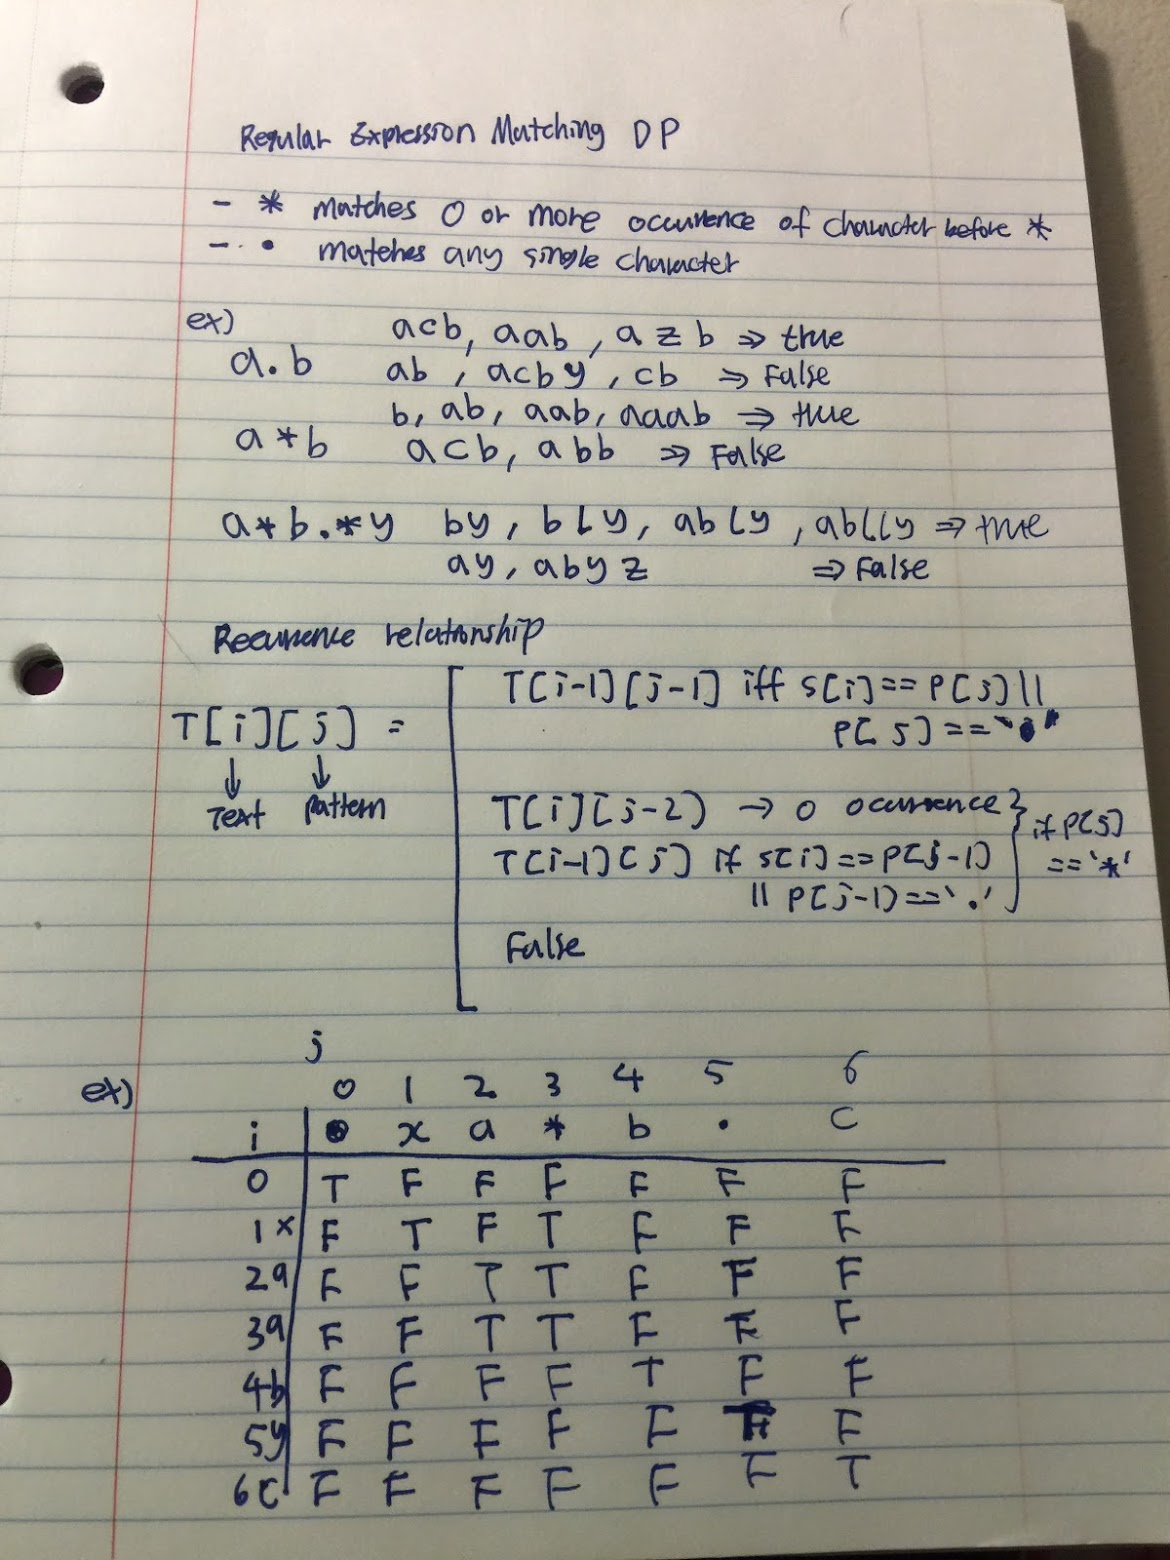 Regular Expression Matching DP
- * matches 0 or more occurrence of character before *
- . matches any single character
ex) acb, aab, azb => true
a.b ab, acby, cb => False
b, ab, aab, aaab => true
a*b acb, abb => False
a*b.*y by, bLy, abLy, abLLy => true
ay, abyz => False
Recurrence relationship
T[i-1][j-1] iff s[i]==P[j] ||
T[i][j] = P[j]=="."
↓ ↓
Text pattern
T[i][j-2] → 0 ocurrence } if P[j]
T[i-1][j] if s[i]==P[j-1] =='*'
|| P[j-1]=='.'
False
j
ex) 0 1 2 3 4 5 6
i x a * b . C
0 T F F F F F F
1x F T F T F F F
2a F F T T F F F
3a F F T T F F F
4b F F F F T F F
5y F F F F F F
6C F F F F F F T